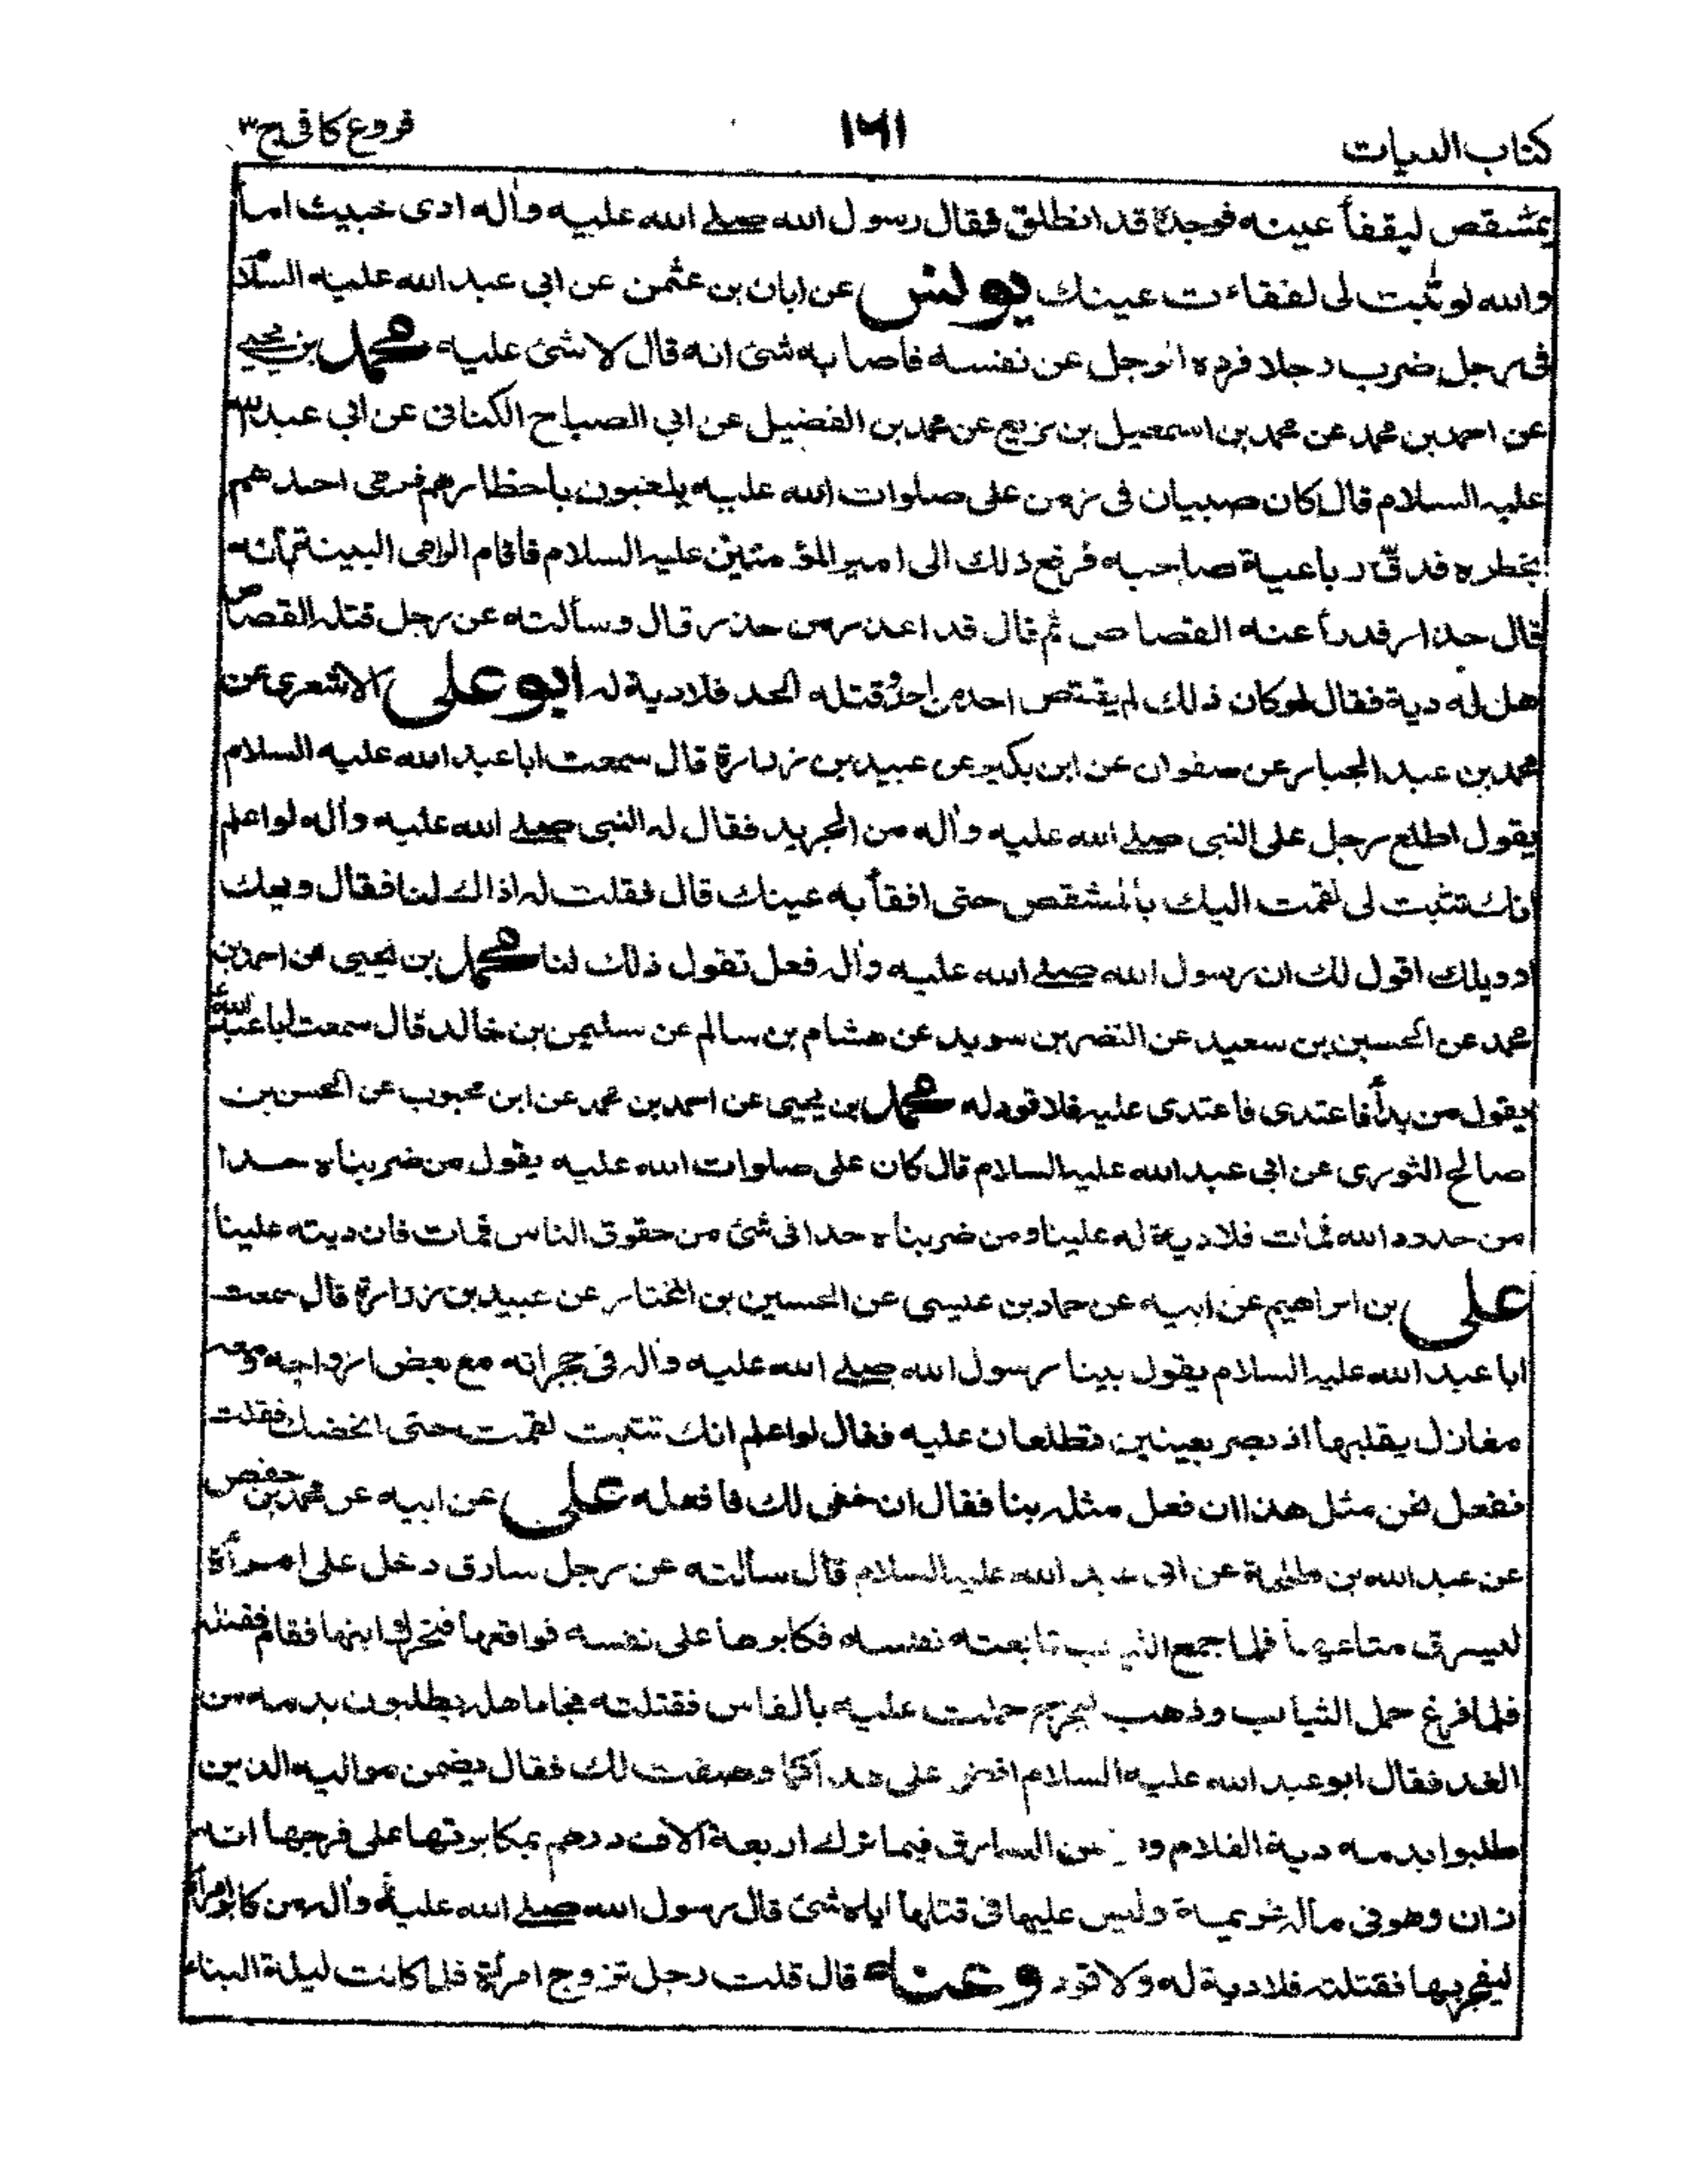 كتاب الديات
١٦١
فروع كافى ج٣
بمشقص ليفقأ عينه فوجده قد انطلق فقال رسول الله صلے الله عليه وآله ادى خبيث اما
والله لو ثبت لى لفقاءت عينك يونس عن ابان بن عثمن عن ابى عبد الله عليه السلام
فى رجل ضرب رجلا فرده الرجل عن نفسه فاصابه شئ انه قال لا شئ عليه محمد بن يحيى
عن احمد بن محمد عن محمد بن اسمعيل بن بزيع عن محمد بن الفضيل عن ابى الصباح الكنانى عن ابى عبد الله
عليه السلام قال كان صبيان فى زمن على صلوات الله عليه يلعبون باخطارهم فرمى احدهم
بخطره فدقّ رباعية صاحبه فرفع ذلك الى امير المؤمنين عليه السلام فاقام الرامى البينة بانه
قال حذار فدرأ عنه القصاص ثم قال قد اعذر من حذر قال وسألته عن رجل قتله القصاص
هل له دية فقال لو كان ذلك لم يقتص احد من احد ومن قتله الحد فلا دية له ابو على الاشعرى عن
محمد بن عبد الجبار عن صفوان عن ابن بكير عن عبيد بن زرارة قال سمعت ابا عبد الله عليه السلام
يقول اطلع رجل على النبى صلے الله عليه وآله من الجريد فقال له النبى صلے الله عليه وآله لو اعلم
انك تثبت لى لقمت اليك بالمشقص حتى افقأ به عينك قال فقلت له اذاك لنا فقال ويحك
او ويلك اقول لك ان رسول الله صلے الله عليه وآله فعل تقول ذلك لنا محمد بن يحيى عن احمد بن
محمد عن الحسين بن سعيد عن النضر بن سويد عن هشام بن سالم عن سليمن بن خالد قال سمعت ابا عبد الله ع
يقول من بدأ فاعتدى فاعتدى عليه فلا قود له محمد بن يحيى عن احمد بن محمد عن ابن محبوب عن الحسن بن
صالح الثورى عن ابى عبد الله عليه السلام قال كان على صلوات الله عليه يقول من ضربناه حدا
من حدود الله فمات فلا دية له علينا ومن ضربناه حدا فى شئ من حقوق الناس فمات فان ديته علينا
على بن ابراهيم عن ابيه عن حماد بن عيسى عن الحسين بن المختار عن عبيد بن زرارة قال سمعت
ابا عبد الله عليه السلام يقول بينا رسول الله صلے الله عليه وآله فى حجراته مع بعض ازواجه ومعه
مغازل يقلبها اذ بصر بعينين تطلعان عليه فقال لو اعلم انك تثبت لقمت حتى انخسك فقلت
نفعل نحن مثل هذا ان فعل مثله بنا فقال ان خفى لك فافعله على عن ابيه عن محمد بن حفص
عن عبد الله بن طلحة عن ابى عبد الله عليه السلام قال سألته عن رجل سارق دخل على امرأة
ليسرق متاعها فلما جمع الثياب تابعته نفسه فكابرها على نفسه فواقعها فتحرك ابنها فقام فقتله
فلما فرغ حمل الثياب وذهب ليخرج حملت عليه بالفاس فقتلته فجاء اهله يطلبون بدمه من
الغد فقال ابو عبد الله عليه السلام اقض على هذا كما وصفت لك فقال يضمن مواليه الذين
طلبوا بدمه دية الغلام و من السارق فيما ترك اربعة آلاف درهم بمكابرتها على فرجها انه
زان وهو فى ماله غريمة وليس عليها فى قتلها اياه شئ قال رسول الله صلے الله عليه وآله من كابر امرأة
ليفجر بها فقتلته فلا دية له ولا قود وعنه قال قلت رجل تزوج امرأة فلما كانت ليلة البناء